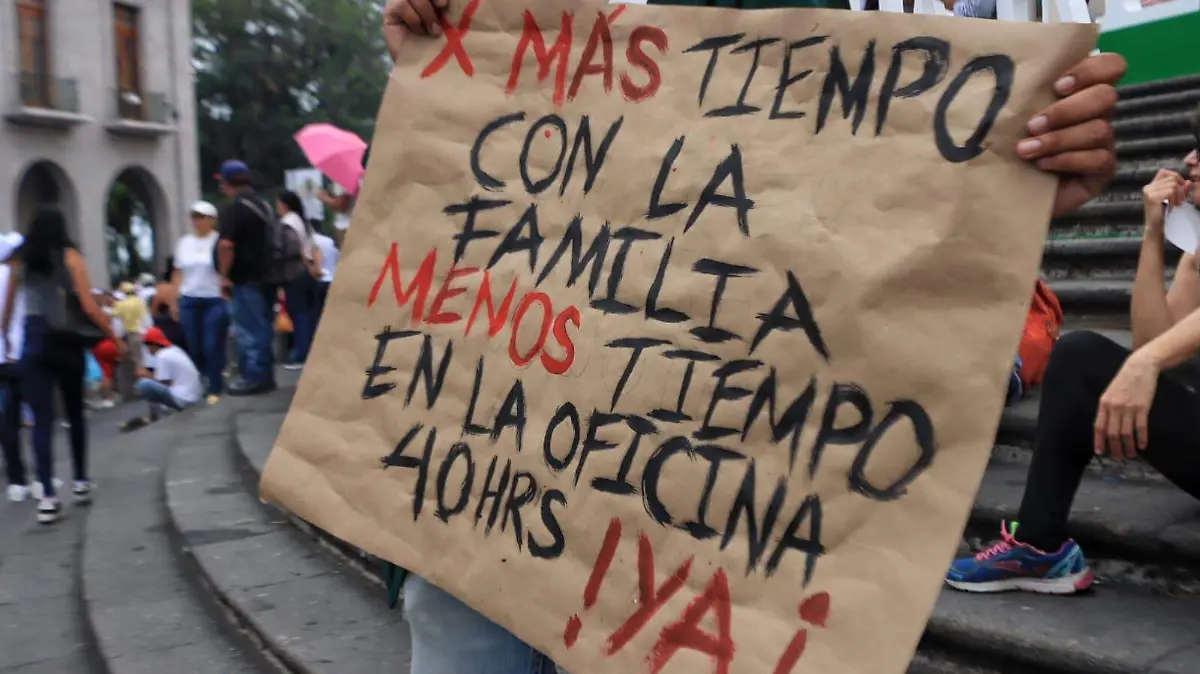 X MÁS TIEMPO
CON LA
FAMILIA
MENOS TIEMPO
EN LA OFICINA
40HRS
!YA¡